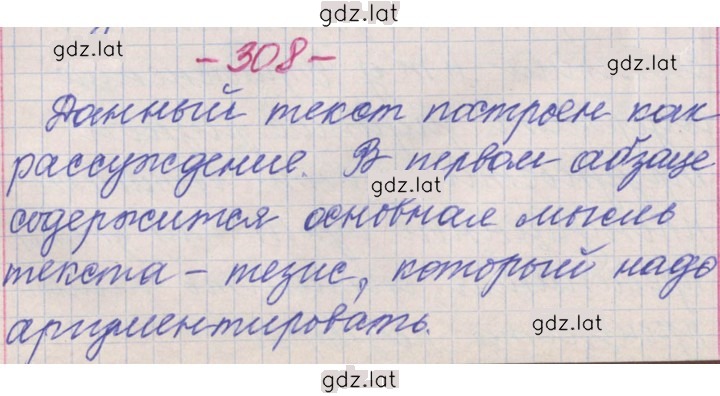 gdz.lat
gdz.lat
- 308 -
gdz.lat
Данный текст построен как
рассуждение. В первом абзаце
gdz.lat
содержится основная мысль
текста - тезис, который надо
аргументировать.
gdz.lat
gdz.lat